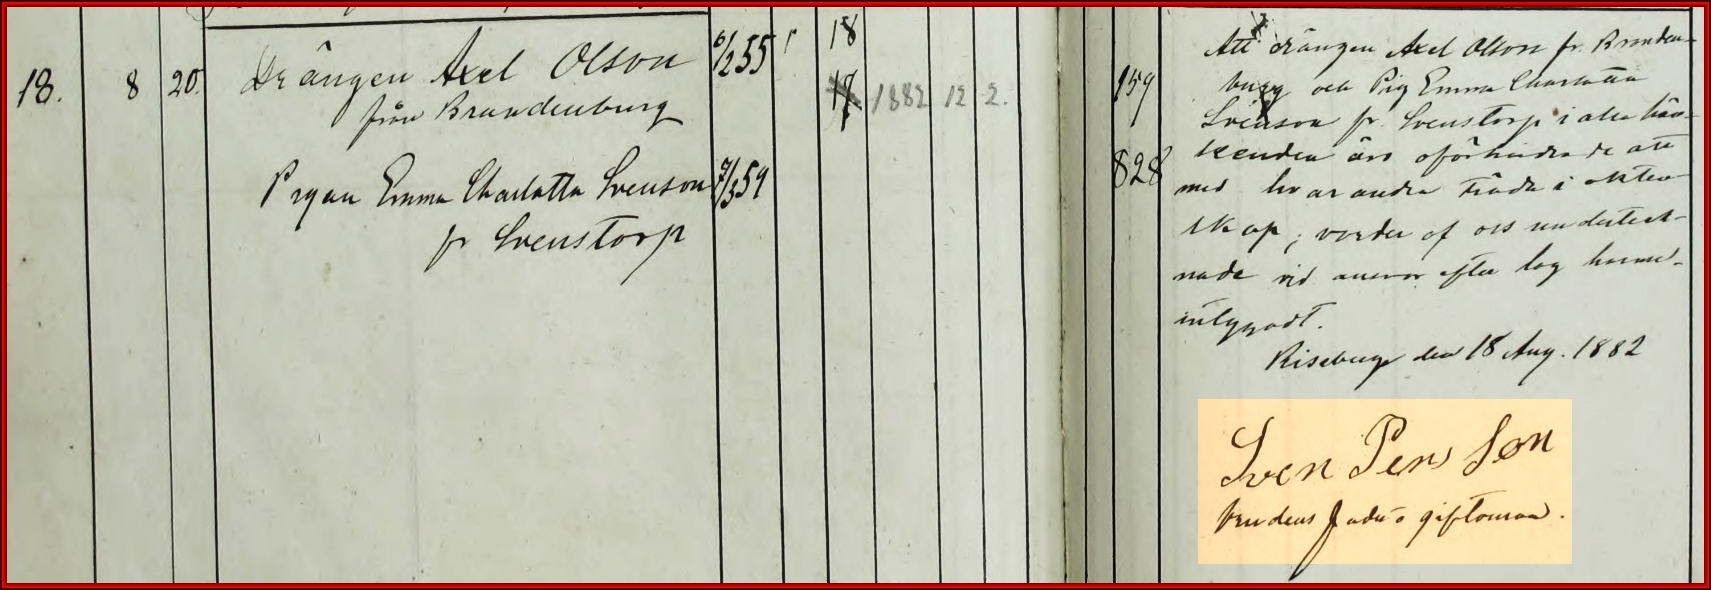 18. 8 20. Drängen Axel Olson 6/2 55 1 18
från Brandenburg 17 1882 12 2.
Pigan Emma Charlotta Svenson 7/3 59
fr Svenstorp
159
828
Att drängen Axel Olson fr. Branden-
burg och Pig Emma Charlotta
Svenson fr. Svenstorp i alla hän-
seenden äro oförhindrade att
med hvarandra träda i äkten-
skap; varder af oss underteck-
nade vid ansvar efter lag härme-
intygadt.
Riseberga den 18 Aug. 1882
Sven Persson
brudens fader o giftoman.